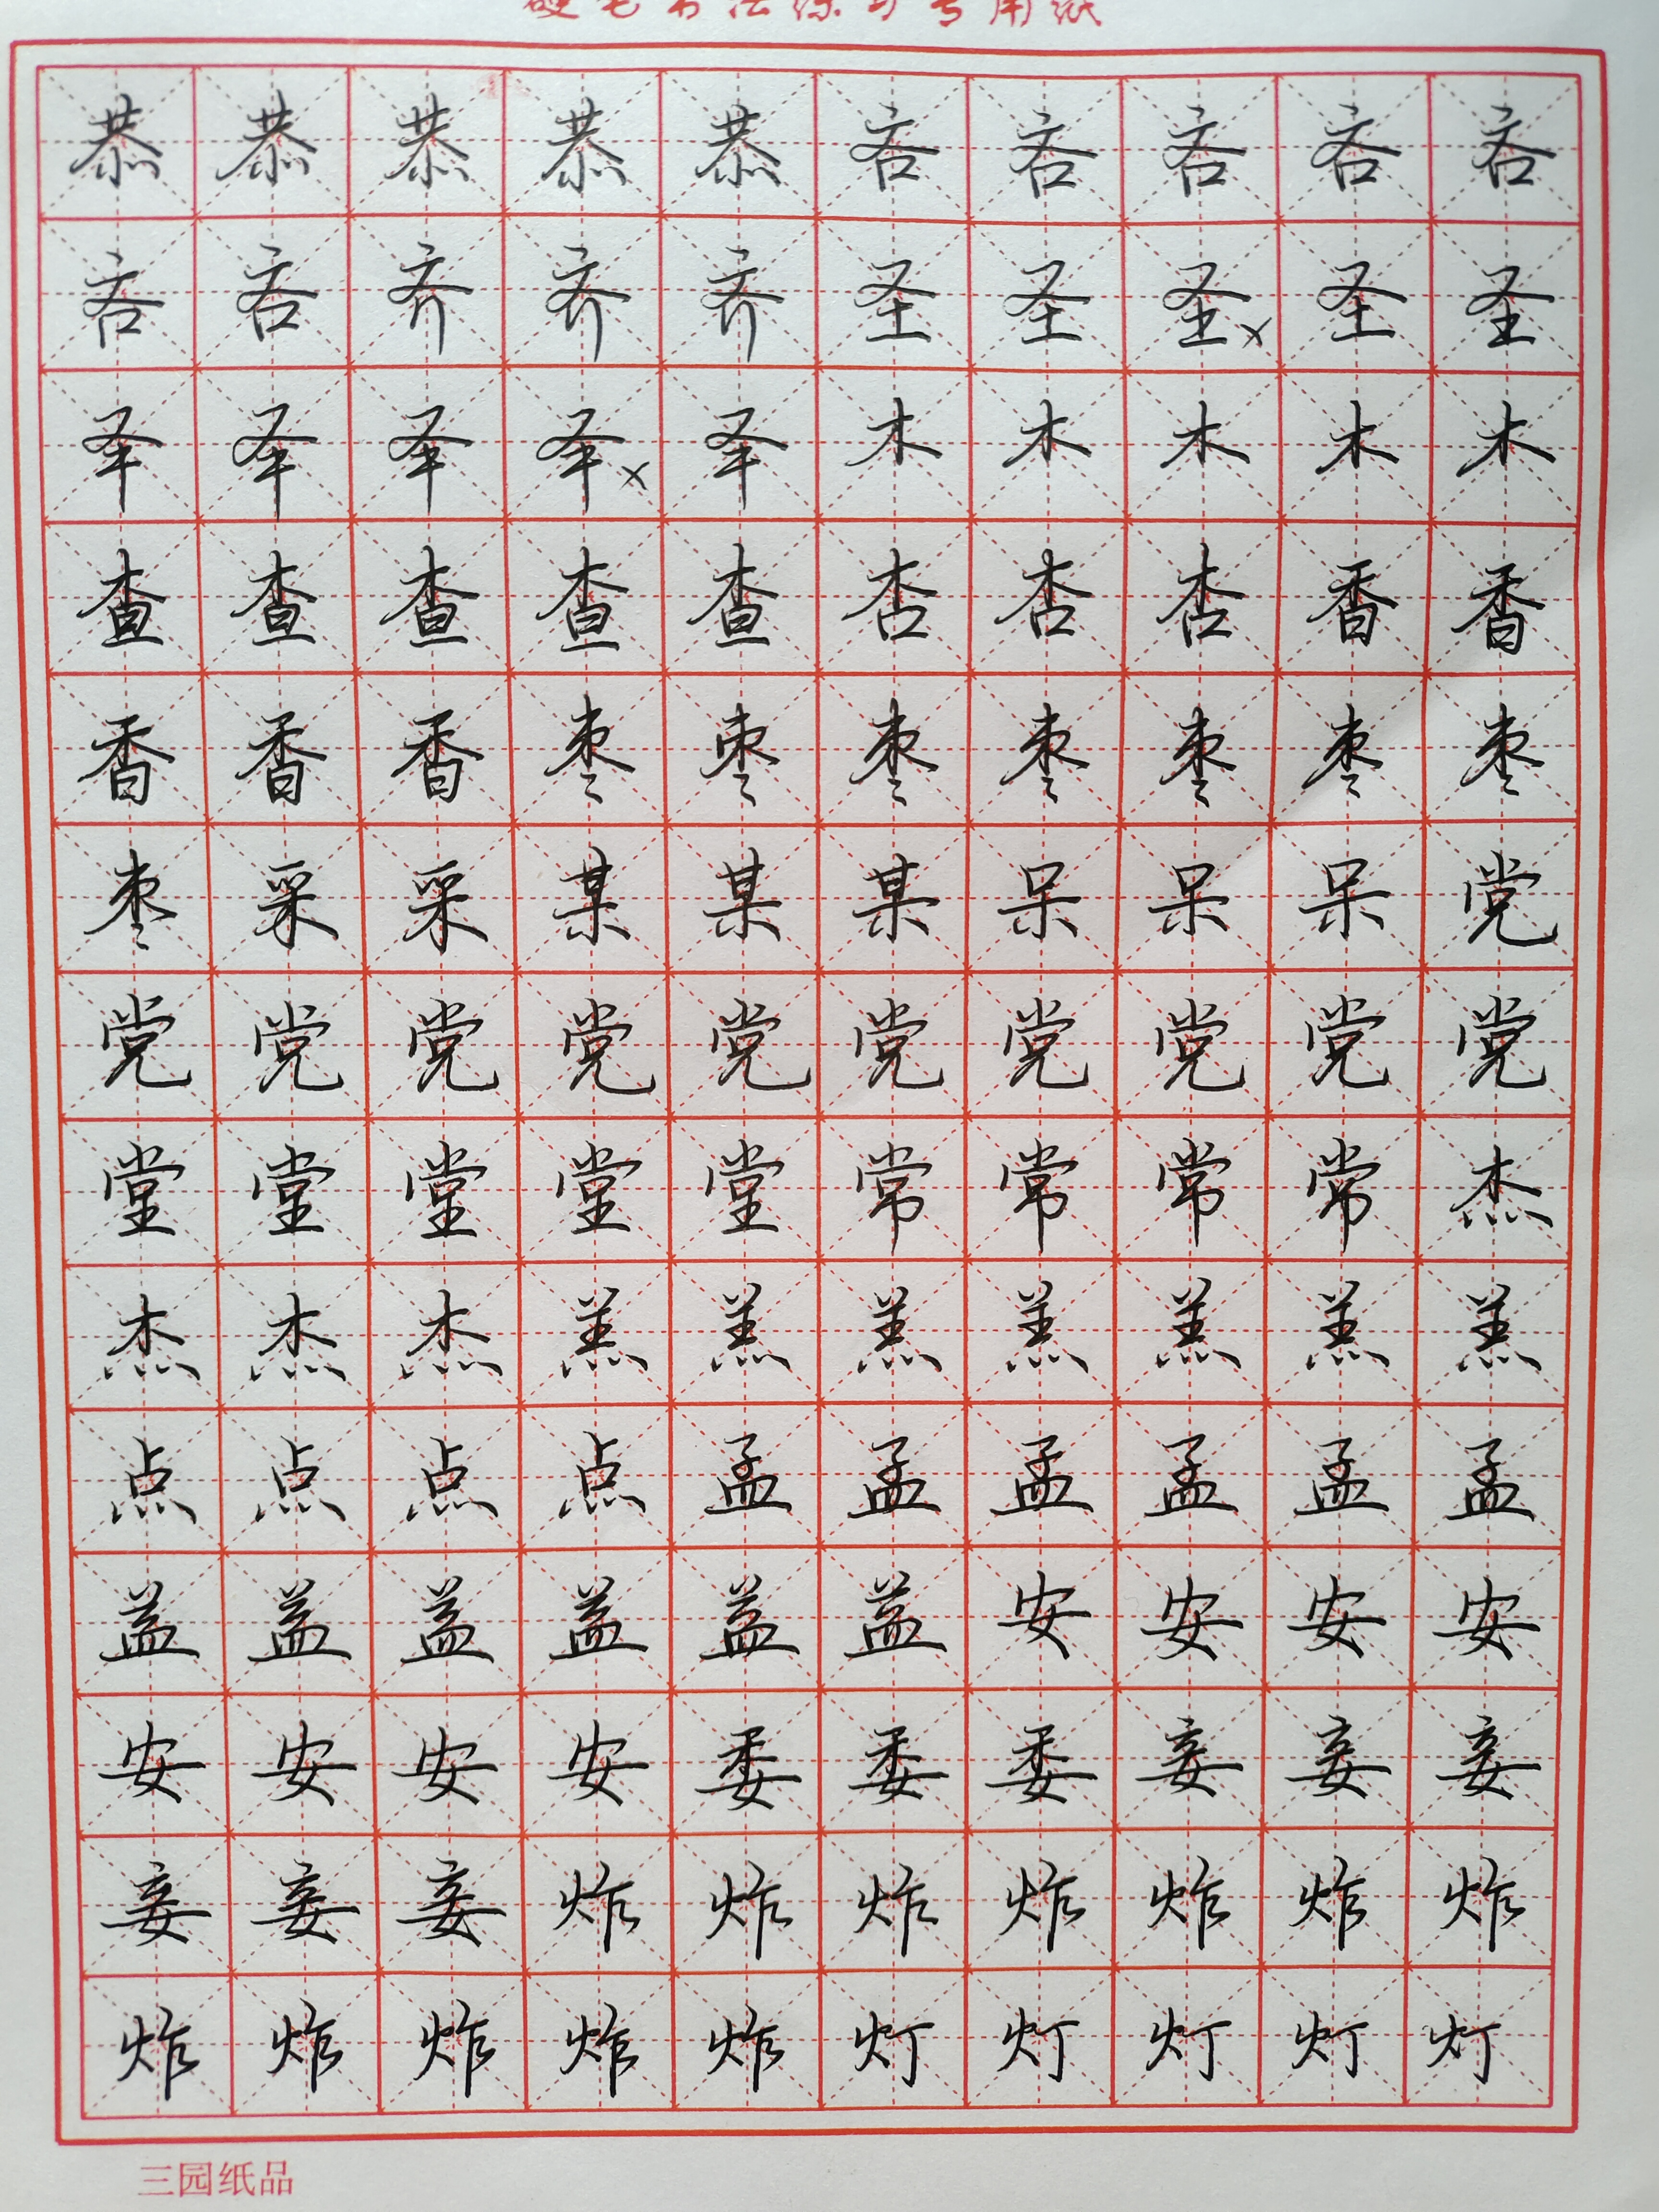 硬笔书法练习专用纸
恭恭恭恭恭吝吝吝吝吝
吝吝齐齐齐圣圣圣×圣圣
𠬤𠬤𠬤𠬤×𠬤木木木木木
查查查查查杏杏杏香香
香香香枣枣枣枣枣枣枣
枣采采某某某呆呆呆党
党党党党党党党党党党
堂堂堂堂堂常常常常杰
杰杰杰羔羔羔羔羔羔羔
点点点点孟孟孟孟孟孟
盖盖盖盖盖盖安安安安
安安安安委委委妾妾妾
妾妾妾炸炸炸炸炸炸炸
炸炸炸炸炸灯灯灯灯灯
三园纸品